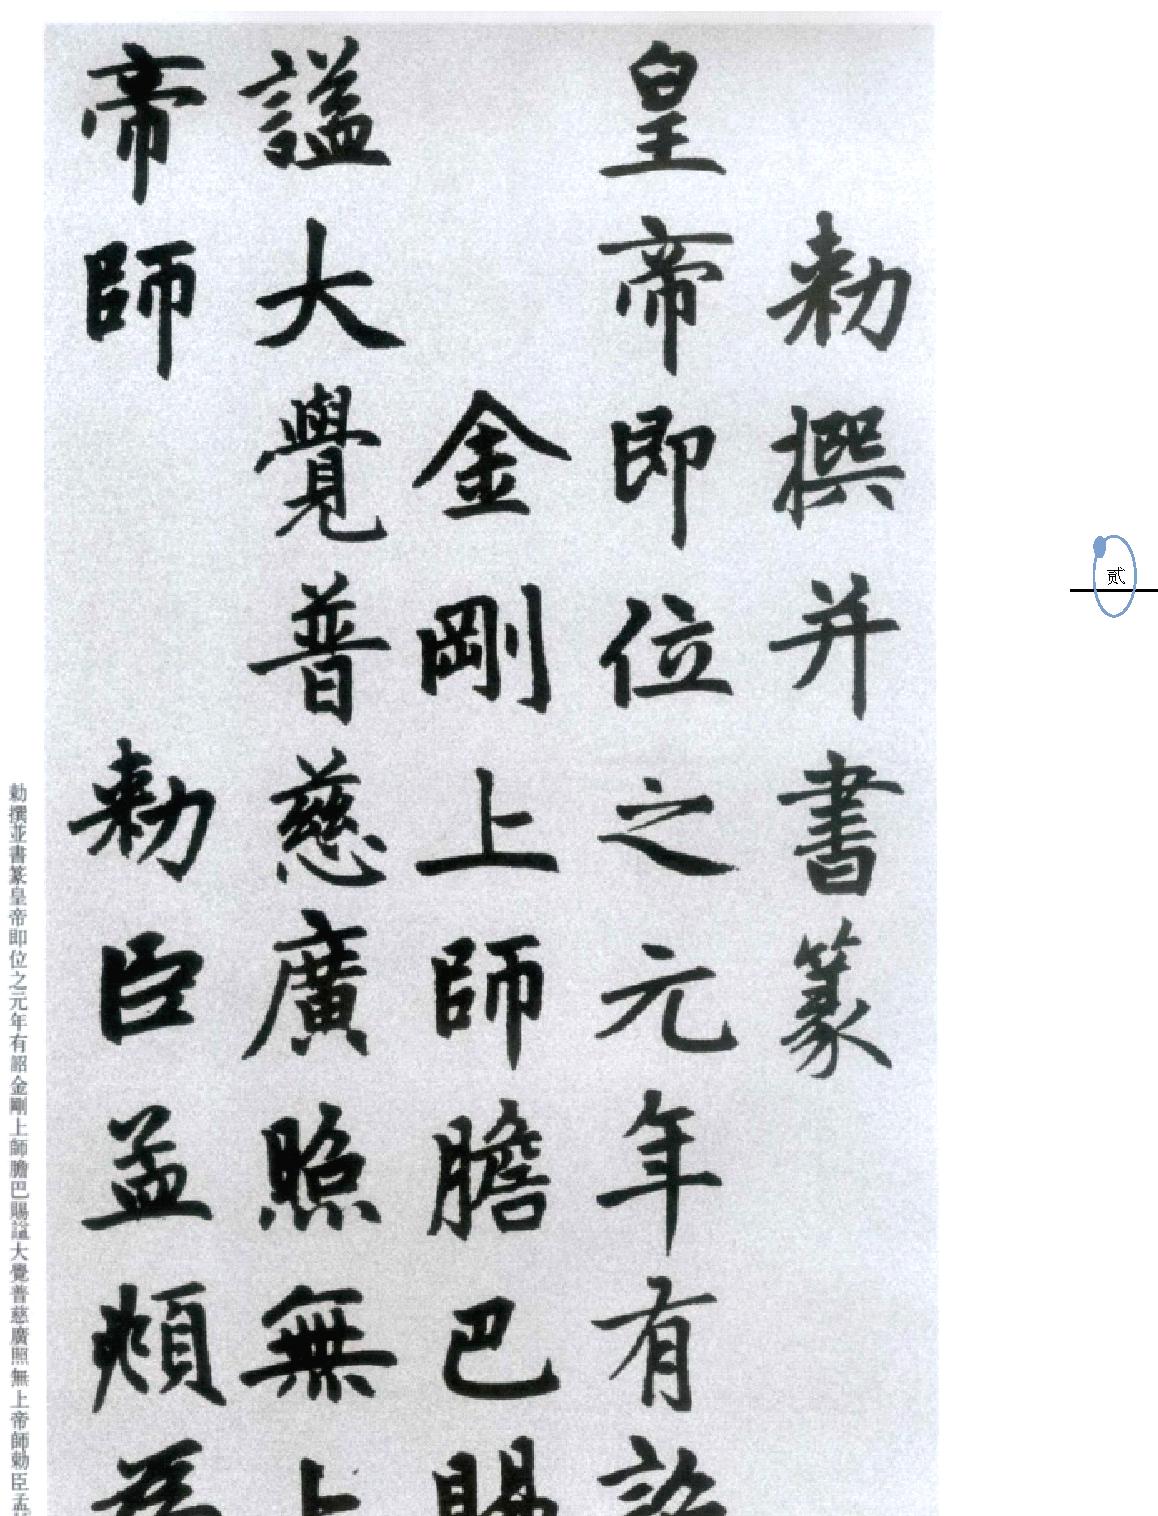 勅撰并書篆
皇帝即位之元年有詔
金剛上師膽巴賜
謚大覺普慈廣照無上
帝師 勅臣孟頫為
貳
勅撰並書篆皇帝即位之元年有詔金剛上師膽巴賜謚大覺普慈廣照無上帝師勅臣孟